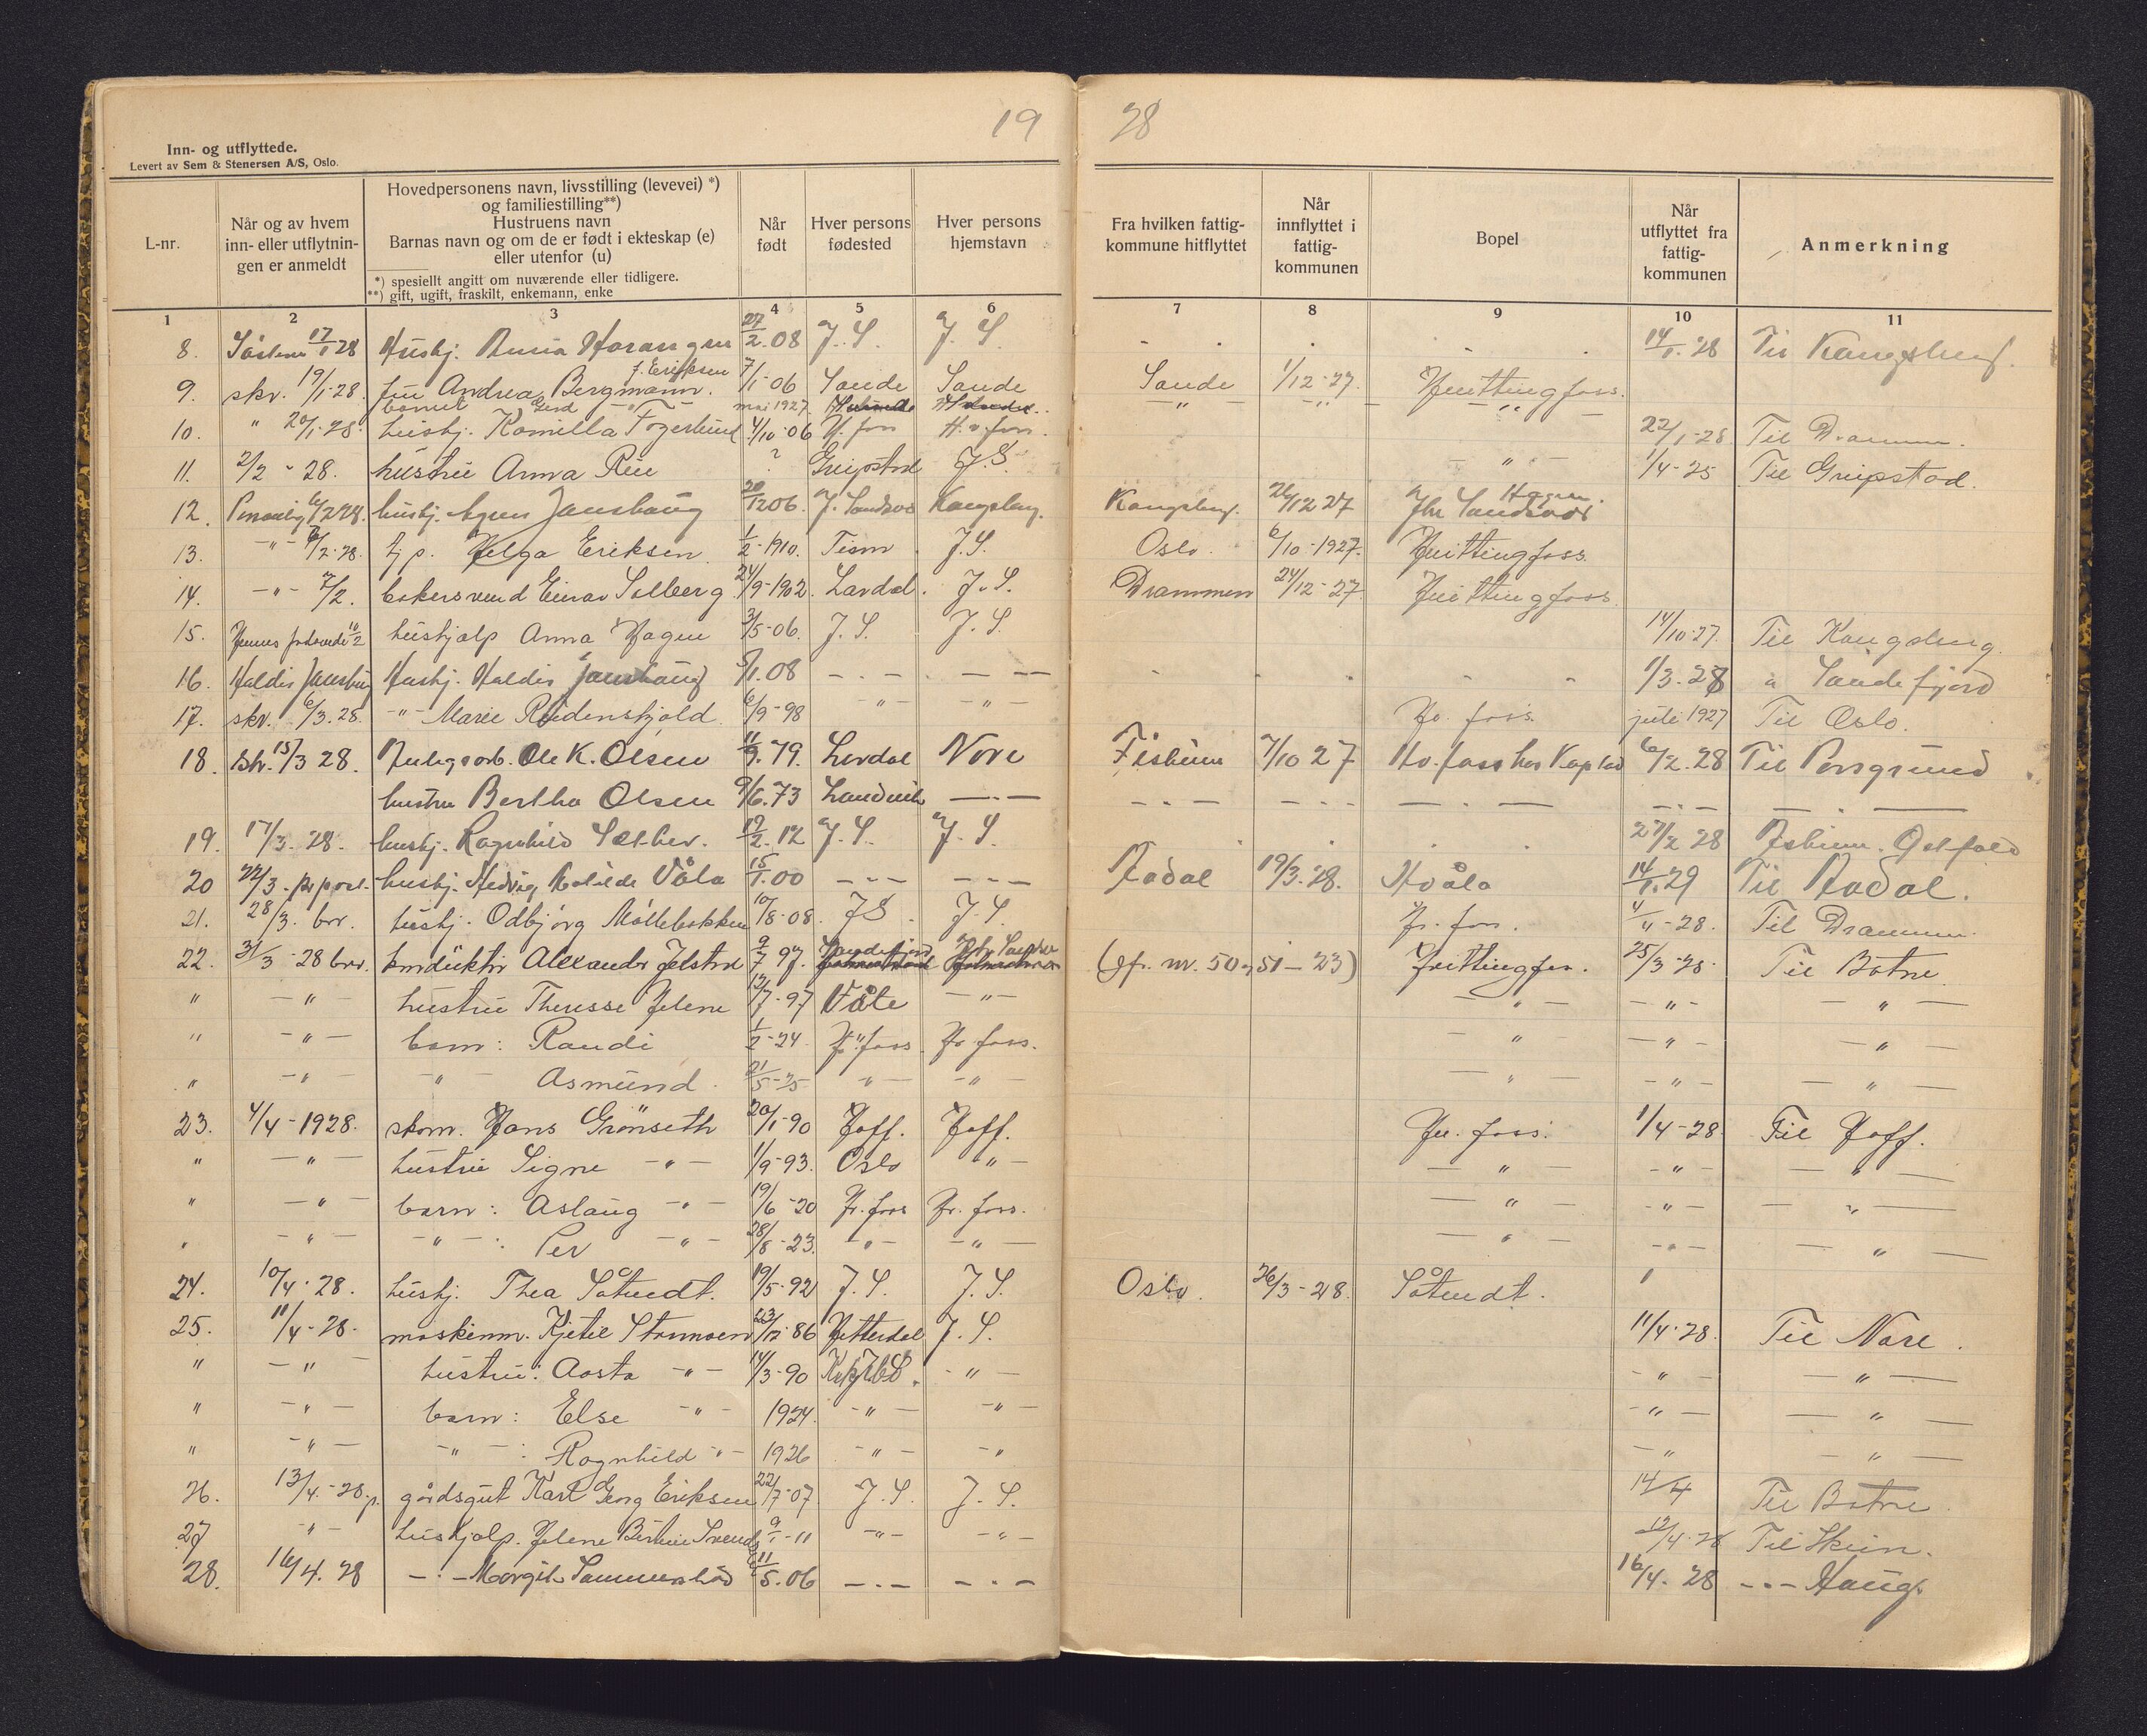 19 28
Inn- og utflyttede.
Levert av Sem & Stenersen A/S, Oslo.
L-nr.
Når og av hvem inn- eller utflytnin- gen er anmeldt
Hovedpersonens navn, livsstilling (levevei) *)
og familiestilling**)
Hustruens navn
Barnas navn og om de er født i ekteskap (e)
eller utenfor (u)
*) spesiellt angitt om nuværende eller tidligere.
**) gift, ugift, fraskilt, enkemann, enke
Når født
Hver persons fødested
Hver persons hjemstavn
Fra hvilken fattig- kommune hitflyttet
Når innflyttet i fattig- kommunen
Bopel
Når utflyttet fra fattig- kommunen
Anmerkning
1 2 3 4 5 6 7 8 9 10 11
8. 17/1 28 Hushj. 27/2.08 J. S. J. S. 14/1.28 Til Kongsberg.
9. skr. 19/1-28. fru Andrea Bergmann. f. Eriksen 7/1-06 Sande Sande Sande 1/12-27. Hvittingfoss.
barnet Gerd - " - mai 1927 - " - - " -
10. " 20/1-28. hushj. Kamilla Fogerlund 4/10-06 H. foss H.v.foss. 22/1-28 Til Drammen.
11. 2/2 - 28. hustru Anna Riu ? Gripstad J.S. - " - 1/4-25 Til Gripstad.
12. 6/2 28. hushj. Agnes Janshaug 20/12 06. J. Sandsvær Kongsberg. Kongsberg. 26/12 27 Hagen. Jbr Sandsvær
13. - " - 6/2-28. tj.p. Helga Eriksen 1/2-1910. Tism J.S. Oslo. 6/10-1927. Hvittingfoss.
14. - " - 7/2. bakersvend Einar Solberg 24/9-1902. Lardal. J.S. Drammen 24/12-27. Hvittingfoss
15. 10/2 hushjalp Anna Hagen 3/5-06. J. S. J. S. 14/10-27. Til Kongsberg.
16. Haldis Janshaug Hushj. Haldis Janshaug 5/1.08 - . - - - 1/3.28 " Sandefjord
17. skr. 6/3.28. - " - Marie Reidenskjold. 6/9-98 - " - - " - Hv. foss. juli 1927 Til Oslo.
18. Skr. 15/3 28. Anlegsarb. Ole K. Olsen 11/9.79. Lardal Nore Fiskum 7/10 27 Hv.foss hos Kopland 6/2.28 Til Porsgrund
hustru Bertha Olsen 9/6.73 Landvik - . - - . - - . - - . - - . - - . -
19. 17/3. 28. hushj. Ragnhild 19/2.12 J. S. J. S. 27/2 28 Østfold
20 22/3. pr post. hushj. Hedvig Matilde Våla 15/1.00 - - - - - - Aadal 19/3.28. Hvåla 14/1.29 Til Aadal.
21. 28/3. brv. hushj. Odbjörg Möllebakken 10/8-08. JS. J. S. Hv. foss. 4/11-28. Til Drammen.
22. 31/3-28 brv. konduktör Alexander Jelstad 9/7-97. Sandefjord (jfr. nr. 50 og 51-23) Hvittingfos. 25/3-28. Til Botne.
" - " - hustru Theresse Jelene 12/7-97 Våle - " - - " - - " - - " -
" - " - barn: Randi 1/2-24 Hv. foss Hv. foss. - " - - " - - " -
" - " - - " - Asmund. 21/5-25 - " - - " - - " - - " - - " -
23. 4/4-1928. skom. Hans Grönseth 20/1-90 Hoff. Hoff. Hv. foss. 1/4-28. Til Hoff.
" - " - hustru Signe - " - 1/9-93. Oslo - " - - " - - " - - " -
" - " - barn: Aslaug - " - 19/6-20 Hv. foss Hv. foss. - " - - " - - " -
" - " - - " - : Per - " - 28/8-23. - " - - " - - " - - " - - " -
24. 10/4-28. hushj. Thea Såtvedt. 19/5-92 J. S. J. S. Oslo. 26/3-28. Såtvedt.
25. 11/4-28. maskinm. Kjetil Stormoen 23/12-86 Hitterdal J. S. 11/4-28. Til Nore.
" - " - hustru: Aasta - " - 14/3-90 - " - - " - - " -
" - " - barn: Else - " - 1924. - " - - " - - " - - " -
" - " - - " - : Ragnhild - " - 1926 - " - - " - " - " -
26. 13/4.-28.p. gårdsgut Karl Georg Eriksen 22/7-07 J. S. J. S. 14/4 Til Botne.
27 - " - hushjalp. Jelene 9/1-11 - " - - " - 12/4-28 Til Skien.
28. 16/4. 28 - . - Margit 11/5.06 - . - - . - 16/4.28 - . - Haug.